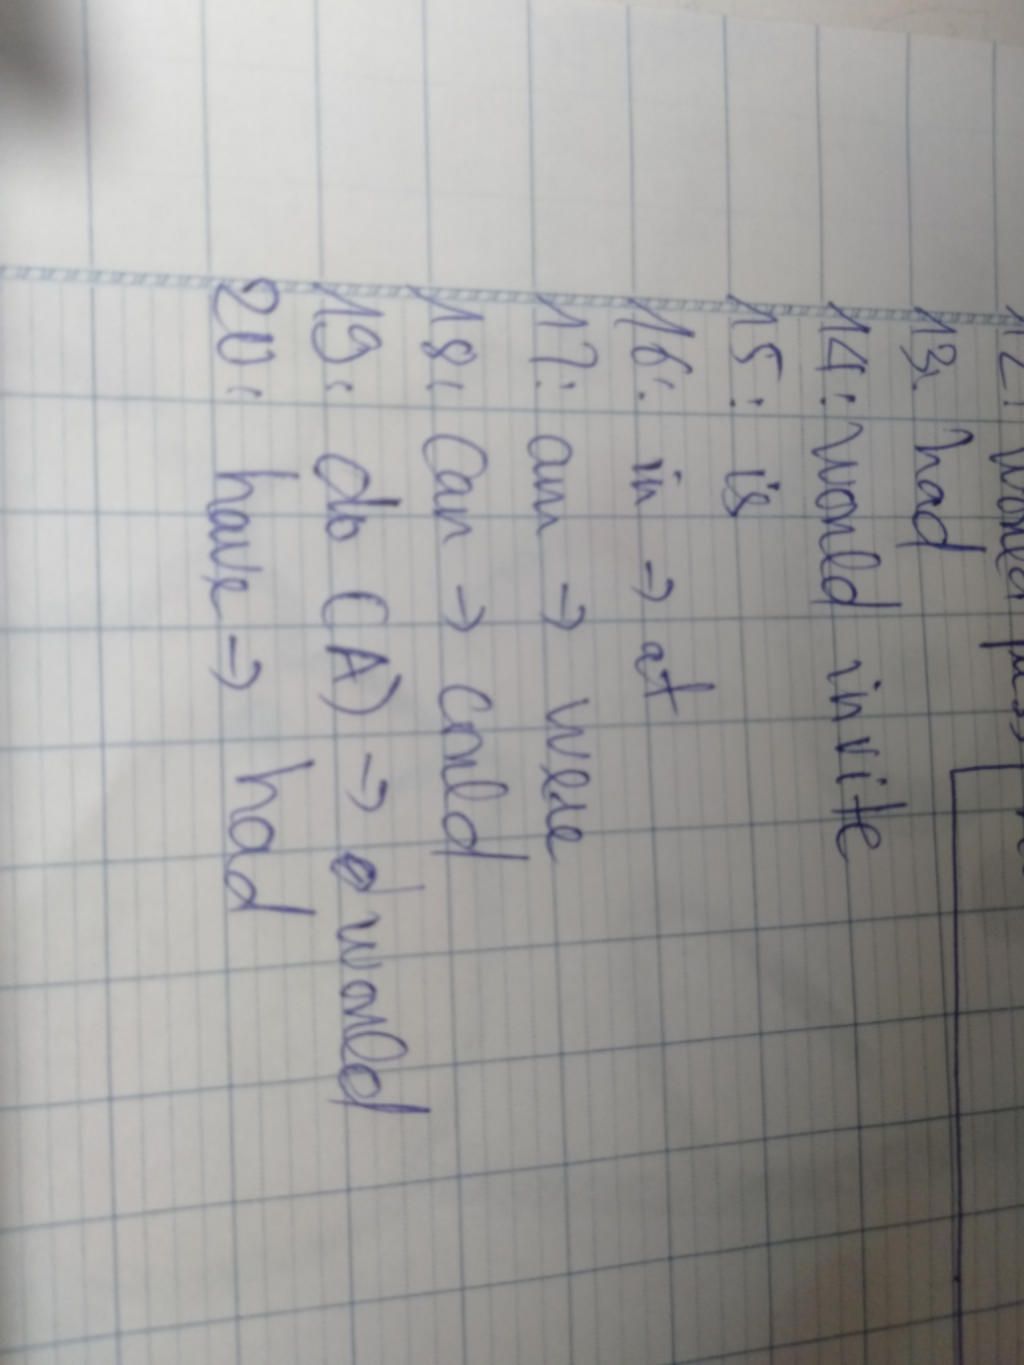 12: would pass
13: had
14: would invite
15: is
16: in → at
17: am → were
18: Can → could
19: do (A) → would
20: have → had